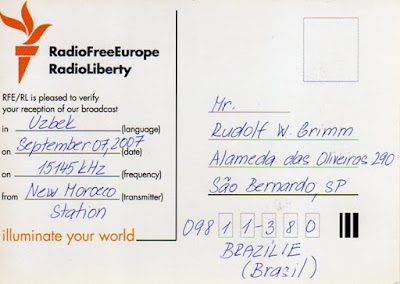 RadioFreeEurope
RadioLiberty
RFE/RL is pleased to verify
your reception of our broadcast
in Uzbek (language)
on September 07, 2007 (date)
on 15145 kHz (frequency)
from New Morocco (transmitter)
Station
illuminate your world
Mr.
Rudolf W. Grimm
Alameda das Oliveiras 290
São Bernardo, SP
098 1 1 - 3 8 0
BRAZÍLIE
(Brasil)